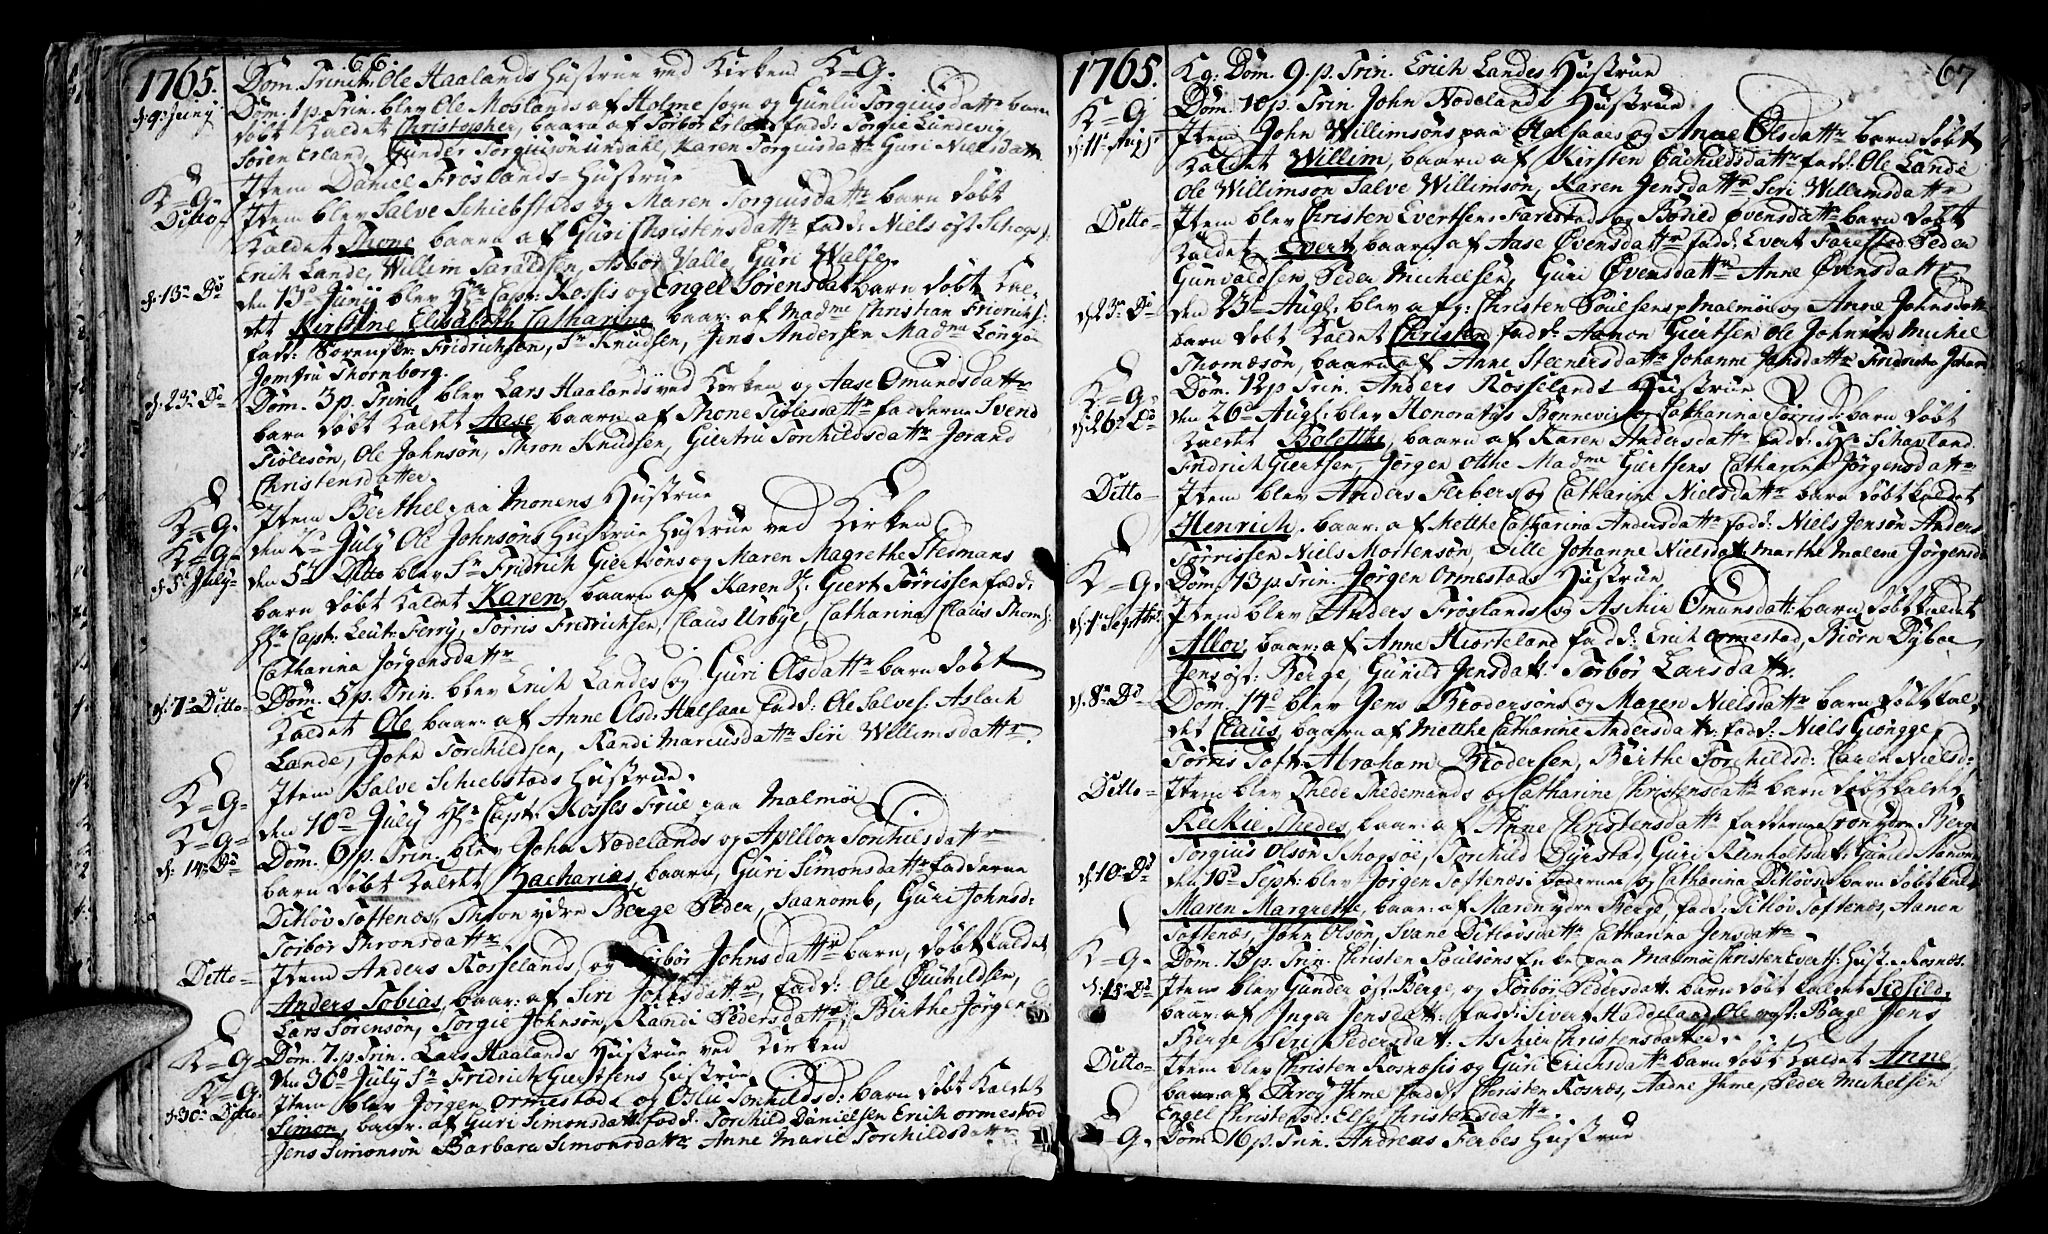 1765.
66.
Dom. Trinit: Ole Haalands Hustrue ved Kirken K=G.
d. 9de Junij
Dom. 1 p. Trin. blev Ole Moslands af Holme sogn og Gunlu Torgiusdattr barn
døbt kaldet Christopher, baaren af Torbor Erland fadd: Torgie Lundevig
Søren Erland, Gunder Torguison undahl, Karen Torguisdattr Guri Nielsdattr
K=G.
Item Daniel Frøslands Hustrue
Ditto
Item blev Salve Schiebstads og Maren Torguisdattr barn døbt
kaldet Thone baarn af Guri Christensdattr fadd: Niels øst Schogs
Erich Lande, Willim Taraldsen, Asbor Valle, Guri Walle.
d. 13de Do
den 13d Junij blev Hr Capt: Rossis og Engel Sørensdat barn døbt kal-
det Kirstine Elisabeth Catharina baar: af Madme Christian Fridrichs:
fadd: Sorenskr: Fridrichsen, Sr Knudsen, Jens Andersen Madme Longøe
Jomfru Thornborg.
d. 23de Do
Dom. 3 p. Trin. blev Lars Haalands ved Kirken og Aase Omundsdattr
barn døbt kaldet Aase baarn af Thone Tiølesdattr fadderne Svend
Tiølesøn, Ole Johnsøn, Thron Knudsen, Giertru Torkildsdattr Jorand
Christensdatter.
K=G.
Item Berthel paa Monens Hustrue
K=G.
den 2d July Ole Johnsøns Hustrue ved Kirken
d. 5te July
den 5te Ditto blev Sr Fridrich Giertsøns og Maren Magrethe Stermans
barn døbt kaldet Karen, baarn af Karen Sl: Giert Tørrissen fadd:
Hr Capt: Leut: Ferry, Tørris Fridrichsen, Claus Urbye, Catharina Claus Thoms:
Catharina Jørgensdattr
d. 7de Ditto
Dom. 5 p. Trin. blev Erich Landes og Guri Olsdattr barn døbt
kaldet Ole baarn: af Anne Olsd: Halsaae fadd: Ole Salves: Aslach
Lande, John Torchildsen, Randi Marcusdattr Siri Willimsdattr.
K=G.
Item Salve Schiebstads Hustrue.
K=G.
den 10d July Hr Capt: Rosses Frue paa Malmøe
d. 14de Do
Dom. 6 p. Trin. blev John Nødelands og Apellon Torkilsdattr
barn døbt kaldet Zacharias, baarn, Guri Simonsdattr fadderne
Ditløv Toftenes, Thron ydre Berge Peder, Saanomb, Guri Johnsd:
Torbor Thronsdattr
Ditto
Item Anders Rosselands, og Torbor Johnsdattr barn, døbt kaldet
Anders Tobias, baar: af Siri Johnsdattr, fadd: Ole Ouchildsen,
Lars Sørensøn, Torgie Johnsøn, Randi Pedersdattr, Birthe Jørgens
K=G.
Dom. 7. p. Trin. Lars Haalands Hustrue ved Kirken
K=G.
den 30d July Sr Fridrich Giertsens Hustrue
d. 30de Ditto
Item blev Jorgen Ormestads og Oslu Torkildsd: barn døbt kaldet
Simon, baarn: af Guri Simonsdatt: fadd: Torchild Danielsen Erich Ormestad
Jens Simonsøn Barbara Simonsdattr Anne Marie Torchildsdattr
1765.
67
K g: Dom. 9. p. Trin. Erich Landes Hustrue
K=G
Dom. 10 p. Trin John Nødelands Hustrue
d. 11te Aug:
Item John Willimsøns paa Halsaaes og Anne Olsdattr barn døbt
kaldet Willim, baarn af Kirsten Bachildsdattr fadd: Ole Lande
Ole Willimsøn Salve Willimsøn, Karen Jensdattr Siri Willimsdattr
Ditto
Item blev Christen Evertsens Farestad og Bodild Øvensdattr barn døbt
kaldet Evert, baarn: af Aase Øvensdattr fadd: Evert Farestad Peder
Gunvaldsen, Peder Michelsen, Guri Øvensdattr Anne Øvensdattr
d. 23de Do
den 23d Aug: blev af g: Christen Poulsens p Malmøe og Anne Johnsdattr
barn døbt kaldet Christen fadd: Aanon Giertsen Ole Johnsen Michel
Thomæsøn, baarn af Anne Steenersdattr Johanne Jansdattr Fridriche Johans
K=G.
Dom. 12 p. Trin. Anders Rosselands Hustrue
d. 26de Do
den 26d Aug: blev Honoratus Bonnevis og Catharina Tørrisd: barn døbt
kaldet Bolethe, baarn af Karen Andersdattr fadd: Hr Schavland
Fridrich Giertsen, Jørgen Otthe Madme Giertsens Catharina Jørgensdattr
Ditto
Item blev Anders Ferbers og Catharine Nielsdattr barn døbt kaldet
Henrich. baar: af Metthe Catharina Andersdattr fadd: Niels Jensøn Anders
Tørrissen Niels Mortensøn, Sille Johanne Nielsdatt: Marthe Malene Jørgensda
K=G.
Dom. 13 p. Trin. Jørgen Ormestads Hustrue
d. 1te Septbr:
Item blev Anders Frøslands og Aschie Omunsdatt: barn døbt kaldet
Allov, baar: af Anne Hiorteland fadd: Erich Ormestad, Biørn Dyboe,
Jens øst: Berge, Gunild Jensdatt: Torbor Larsdattr.
d. 8de Do
Dom. 14d blev Jens Brodersøns og Maren Nielsdattr barn døbt kal-
det Claus, baarn: af Metthe Catharine Andersdatr: fadd: Niels Giøngge,
Tørris Toft: Abraham Brodersen, Birthe Torchildsd: Caren Nielsd:
Ditto
Item blev Thede Thedemands og Catharine Christensdattr barn døbt kaldet
Reckie Thedes, baar: af Anne Christensdattr fadderne Tron ydre Berge
Torgius Olsøn Schogsøe, Torchild Dyrstad, Guri Reinholtsdatt: Gunild Aanons
d. 10de Do
den 10d Sept: blev Jørgen Toftenes i boderne og Catharina Ditløvsd: barn døbt kald:
Maren Margrethe, baar: af Maren ydre Berge, fadd: Ditløv Toftenes, Aanon
Toftenæs, John Olsøn, Svane Ditlovsdattr Catharina Jensdattr
K=G.
Dom. 15 p. Trin. Christen Poulsøns Enke paa Malmøe Christen Everts: Hust: Rosnæs.
d. 15de Do
Item blev Gunder øst: Berge, og Torbor Pedersdatt: barn døbt kaldet Sidsild,
baar: af Inga Jensdatt: fadd: Siver Haddeland, Ole øst: Berge Jens
Berge Siri Pedersdat: Aschier Christensdatter.
Ditto
Item blev Christen Rosnæsis og Guri Erichsdattr barn døbt kaldet Anne,
baarn: af Throy Ihme fadd: Christen Rosnæs, Aadne Ihme, Peder Michelsen
Engel Christensd: Else Christensdattr.
K=G.
Dom. 16 p. Trin. Andreas Ferbes Hustrue